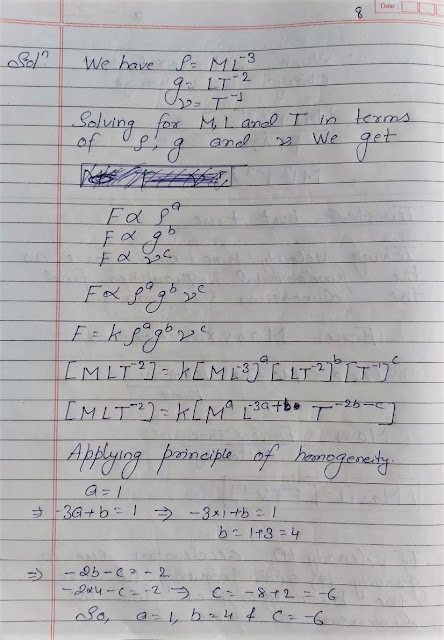 8 Date
Solⁿ We have ρ = ML⁻³
g = LT⁻²
ν = T⁻¹
Solving for M, L and T in terms
of ρ, g and ν. We get
F ∝ ρᵃ
F ∝ gᵇ
F ∝ νᶜ
F ∝ ρᵃ gᵇ νᶜ
F = k ρᵃ gᵇ νᶜ
[MLT⁻²] = k[ML⁻³]ᵃ [LT⁻²]ᵇ [T⁻¹]ᶜ
[MLT⁻²] = k[Mᵃ L⁻³ᵃ⁺ᵇ T⁻²ᵇ⁻ᶜ]
Applying principle of homogeneity.
a = 1
⇒ -3a+b = 1 ⇒ -3×1+b = 1
b = 1+3 = 4
⇒ -2b-c = -2
-2×4-c = -2 ⇒ c = -8+2 = -6
So, a = 1, b = 4 & c = -6